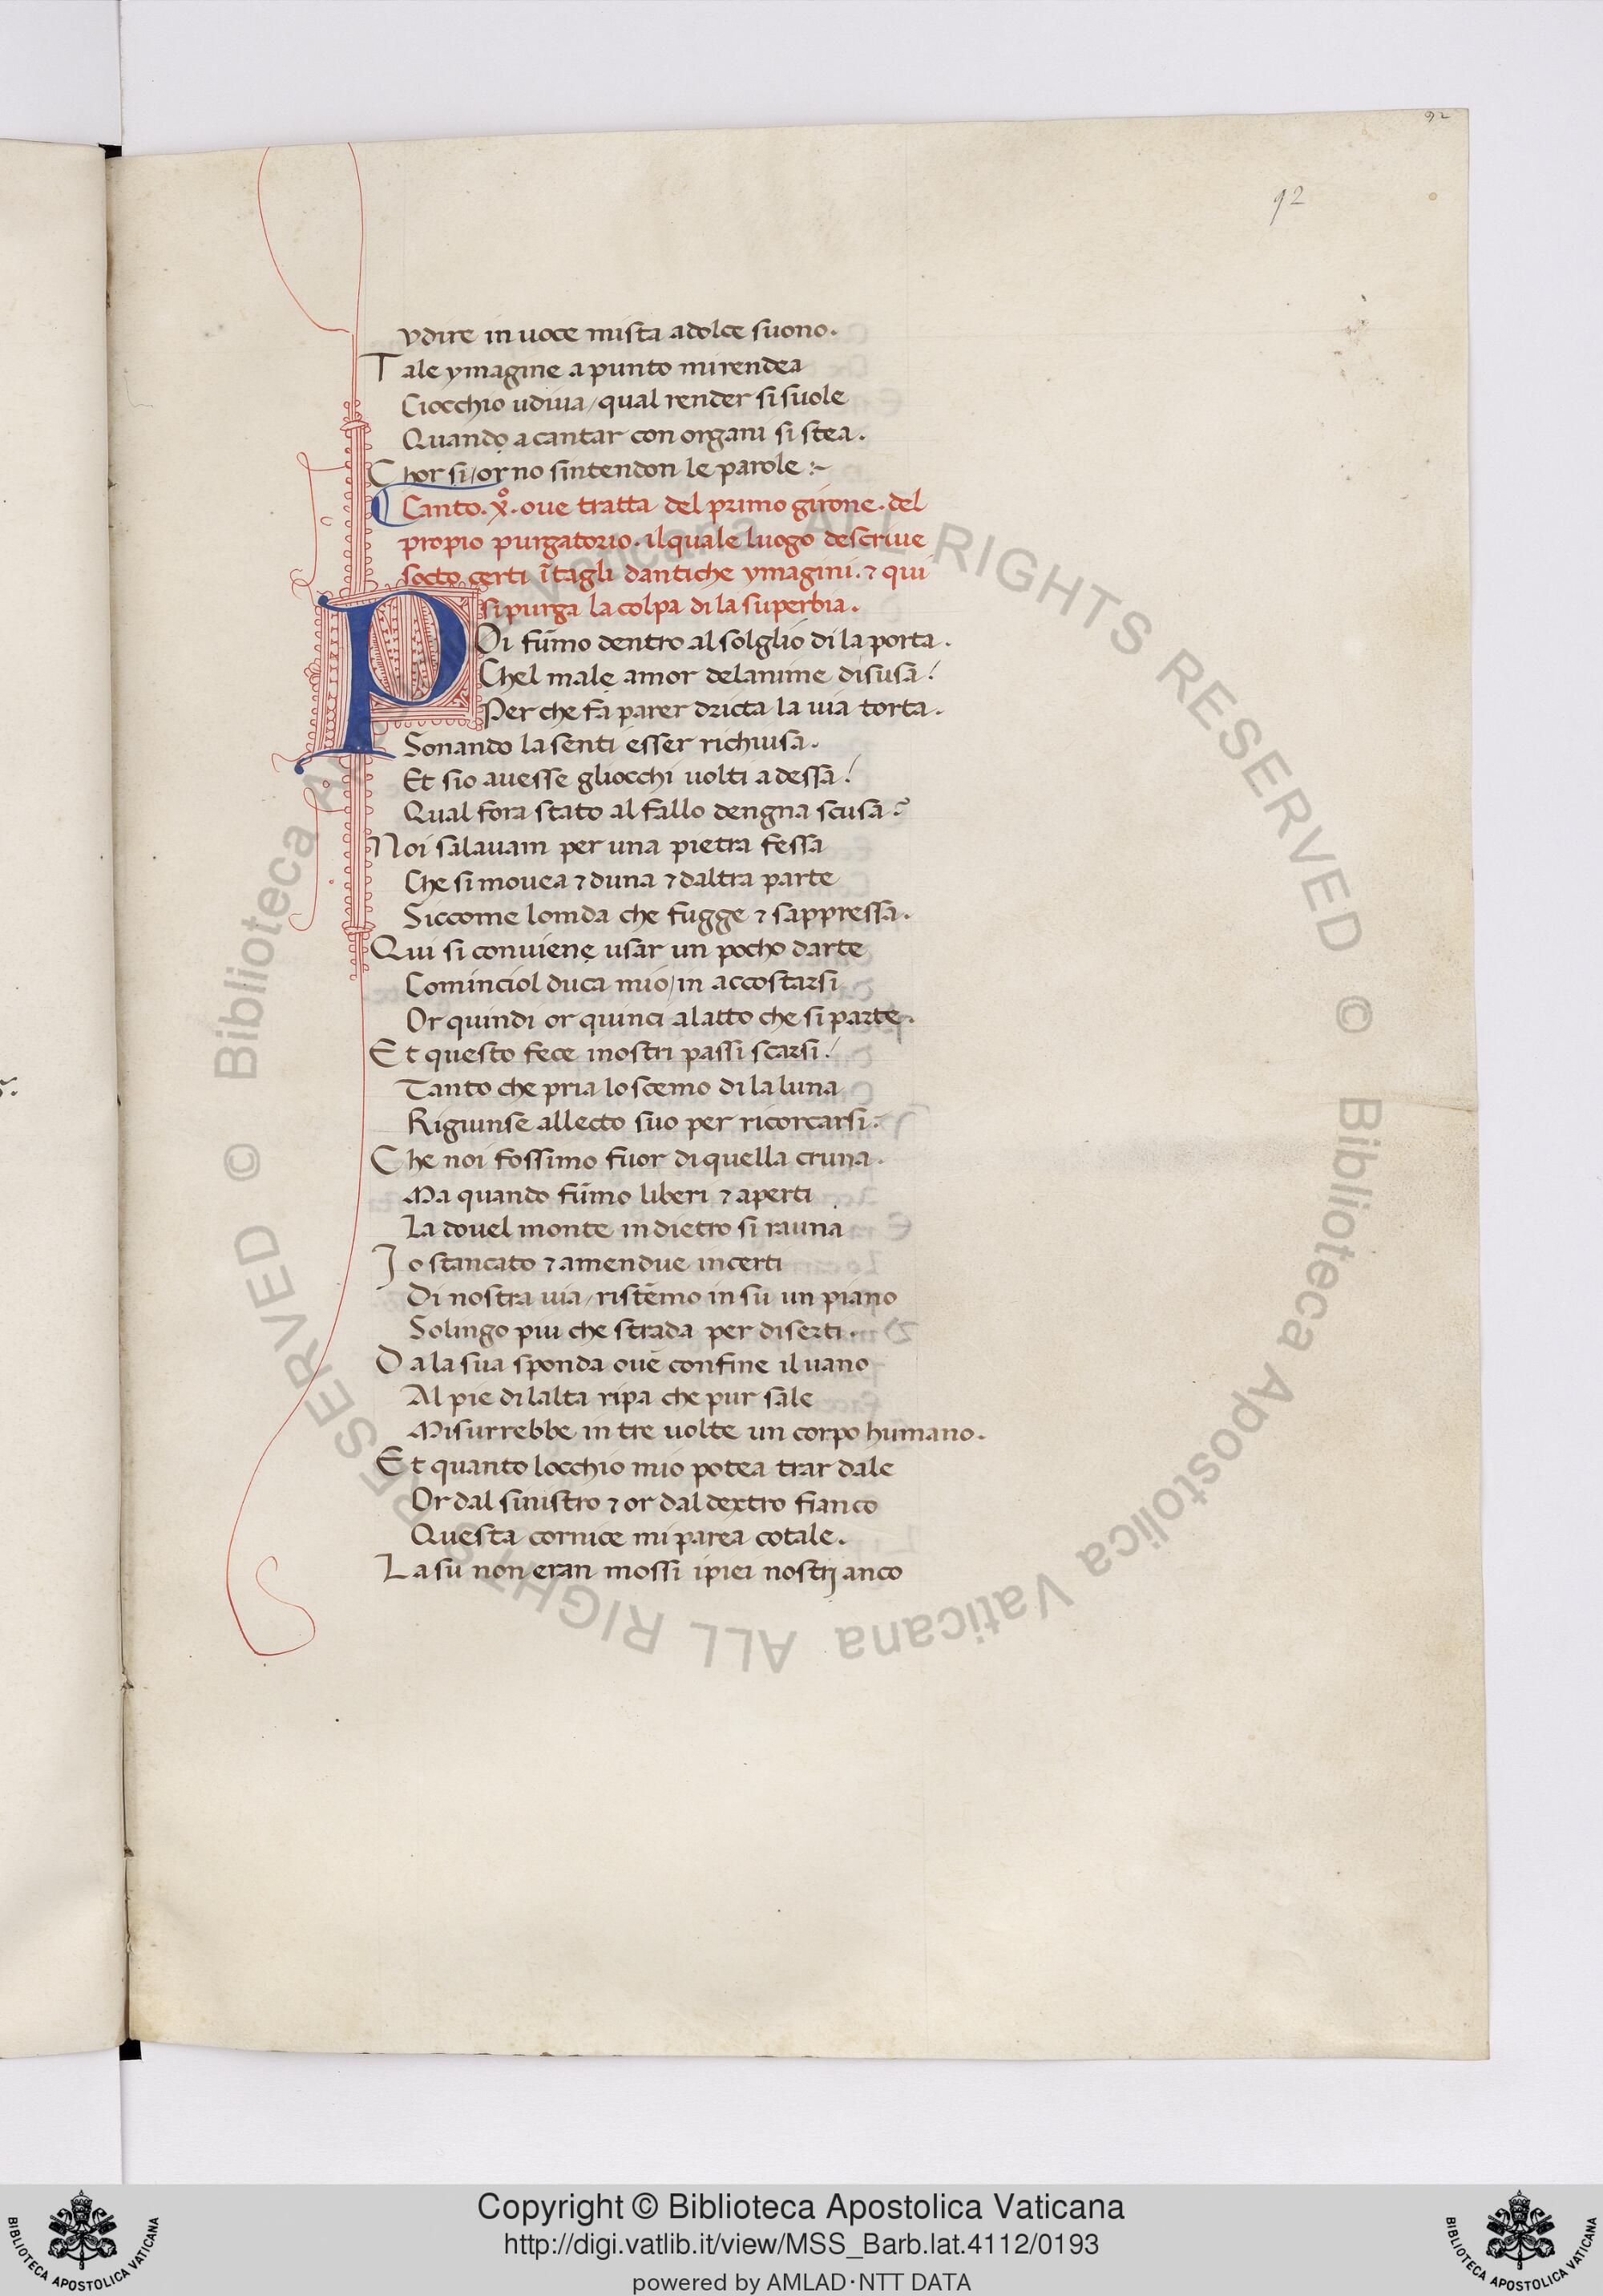 92
92
vdire in uoce mista adolce suono.
Tale ymagine a punto mi rendea
Ciocchio udiua / qual render si suole
Quando a cantar con organi si stea.
Chor si / or no sintendon le parole :~
Canto. xº. oue tratta del primo girone. del
propio purgatorio. il quale luogo descriue
socto certi ĩtagli dantiche ymagini. ⁊ qui
si purga la colpa di la superbia.
POi fũmo dentro al solglio di la porta.
Chel male amor delanime disusa /
Per che fa parer dricta la uia torta.
Sonando la senti esser richiusa.
Et sio auesse gliocchi uolti adessa /
Qual fora stato al fallo dengna scusa?
Noi salauam per una pietra fessa
Che si mouea ⁊ duna ⁊ daltra parte
Siccome lomda che fugge ⁊ sappressa.
Qui si conuiene usar un pocho darte
Cominciol duca mio / in accostarsi
Or quindi or quinci alatto che si parte.
Et questo fece inostri passi scarsi /
Tanto che pria lo scemo di la luna
Rigiunse allecto suo per ricorcarsi.
Che noi fossimo fuor di quella cruna.
Ma quando fũmo liberi ⁊ aperti
La douel monte indietro si rauna
Io stancato ⁊ amendue incerti
Di nostra uia / ristẽmo in su un piano
Solingo piu che strada per diserti.
Da la sua sponda ouẽ confine il uano
Al pie di lalta ripa che pur sale
Misurrebbe in tre uolte un corpo humano.
Et quanto locchio mio potea trar dale
Or dal sinistro ⁊ or dal dextro fianco
Questa cornice mi parea cotale.
La su non eran mossi ipiei nostrj anco
© Biblioteca Apostolica Vaticana ALL RIGHTS RESERVED © Biblioteca Apostolica Vaticana ALL RIGHTS RESERVED
Copyright © Biblioteca Apostolica Vaticana
http://digi.vatlib.it/view/MSS_Barb.lat.4112/0193
powered by AMLAD·NTT DATA
BIBLIOTECA APOSTOLICA VATICANA
BIBLIOTECA APOSTOLICA VATICANA